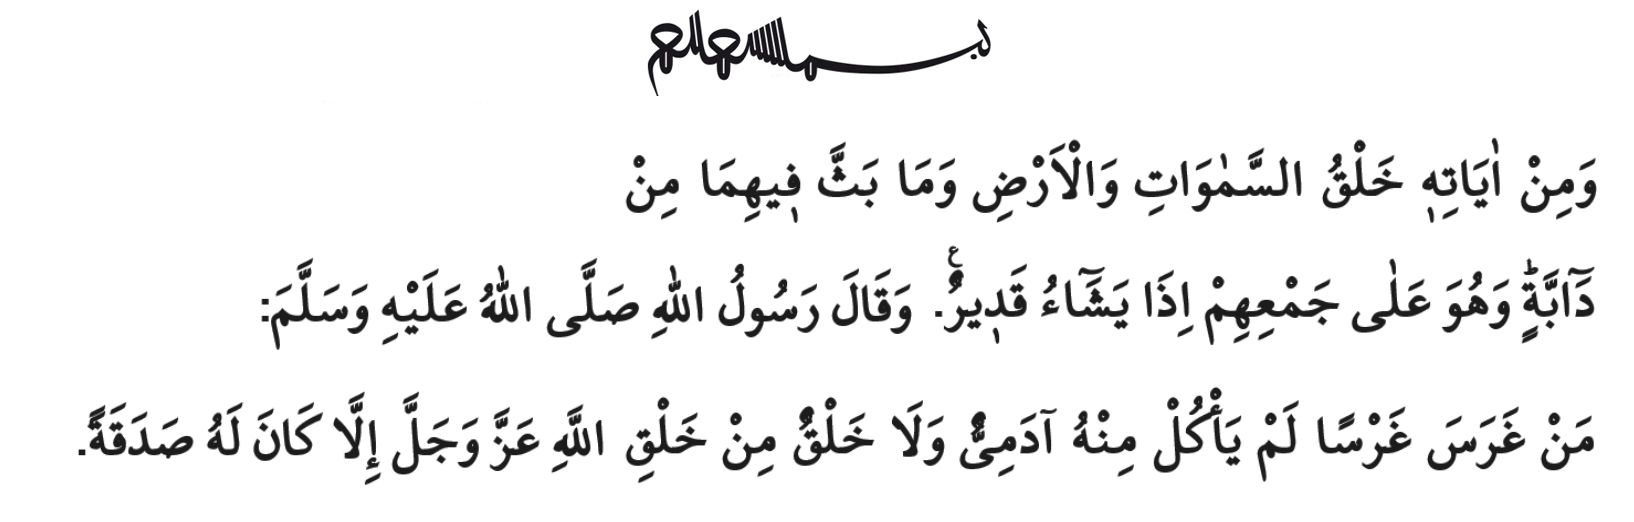 بسم الله الرحمن الرحيم
وَمِنْ اٰيَاتِهٖ خَلْقُ السَّمٰوَاتِ وَالْاَرْضِ وَمَا بَثَّ فٖيهِمَا مِنْ
دَٓابَّةٍۜ وَهُوَ عَلٰى جَمْعِهِمْ اِذَا يَشَٓاءُ قَدٖيرٌ۟. وَقَالَ رَسُولُ اللّٰهِ صَلَّى اللّٰهُ عَلَيْهِ وَسَلَّمَ:
مَنْ غَرَسَ غَرْسًا لَمْ يَأْكُلْ مِنْهُ آدَمِىٌّ وَلَا خَلْقٌ مِنْ خَلْقِ اللَّهِ عَزَّ وَجَلَّ إِلَّا كَانَ لَهُ صَدَقَةً.